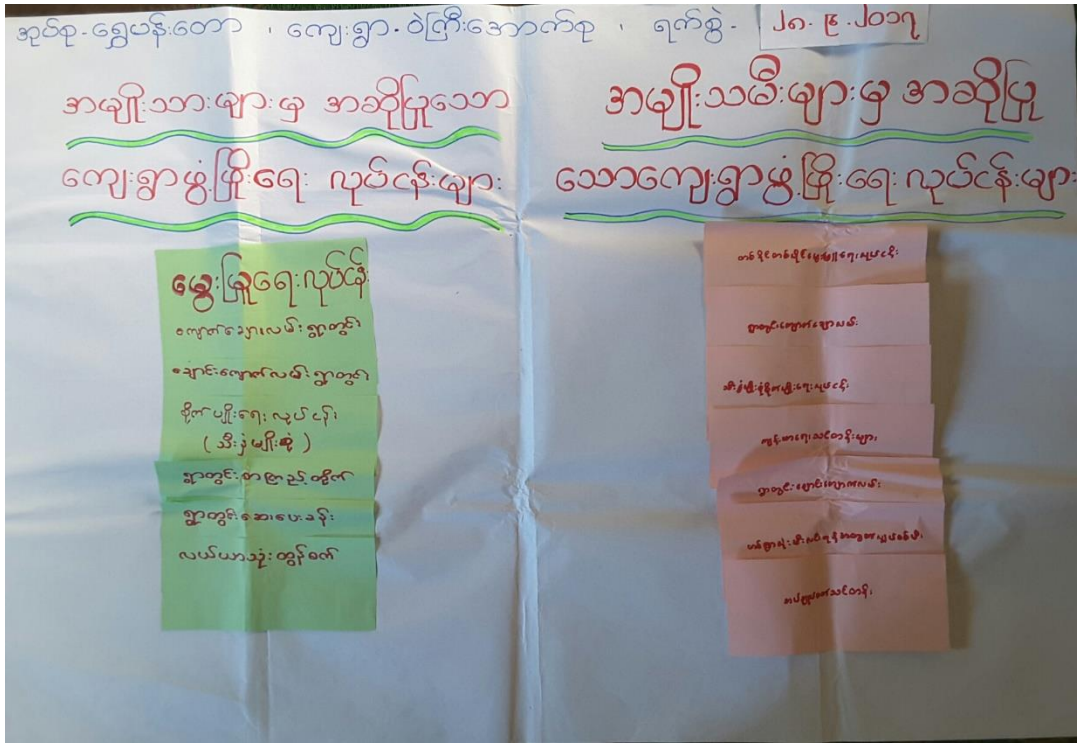 အုပ်စု-ရွှေပန်းတော၊ ကျေးရွာ-ဝဲကြီးအောက်စု၊ ရက်စွဲ- ၂၈.၉.၂၀၁၇
အမျိုးသားများမှ အဆိုပြုသော
ကျေးရွာဖွံ့ဖြိုးရေး လုပ်ငန်းများ
မွေးမြူရေးလုပ်ငန်း
ကျောက်ချောလမ်းရွာတွင်း
ချောင်းကျောက်လမ်းရွာတွင်း
စိုက်ပျိုးရေးလုပ်ငန်း
(သီးနှံမျိုးစုံ)
ရွာတွင်းစာကြည့်တိုက်
ရွာတွင်းဆေးပေးခန်း
လယ်ယာသုံးထွန်စက်
အမျိုးသမီးများမှ အဆိုပြု
သောကျေးရွာဖွံ့ဖြိုးရေးလုပ်ငန်းများ
တစ်ပိုင်တစ်နိုင်မွေးမြူရေးလုပ်ငန်း
ရွာတွင်းကျောက်ချောလမ်း
သီးနှံမျိုးစုံစိုက်ပျိုးရေးလုပ်ငန်း
ကျန်းမာရေးသင်တန်းများ
ရွာတွင်းချောင်းကျောက်လမ်း
အပ်ချုပ်စက်သင်တန်း